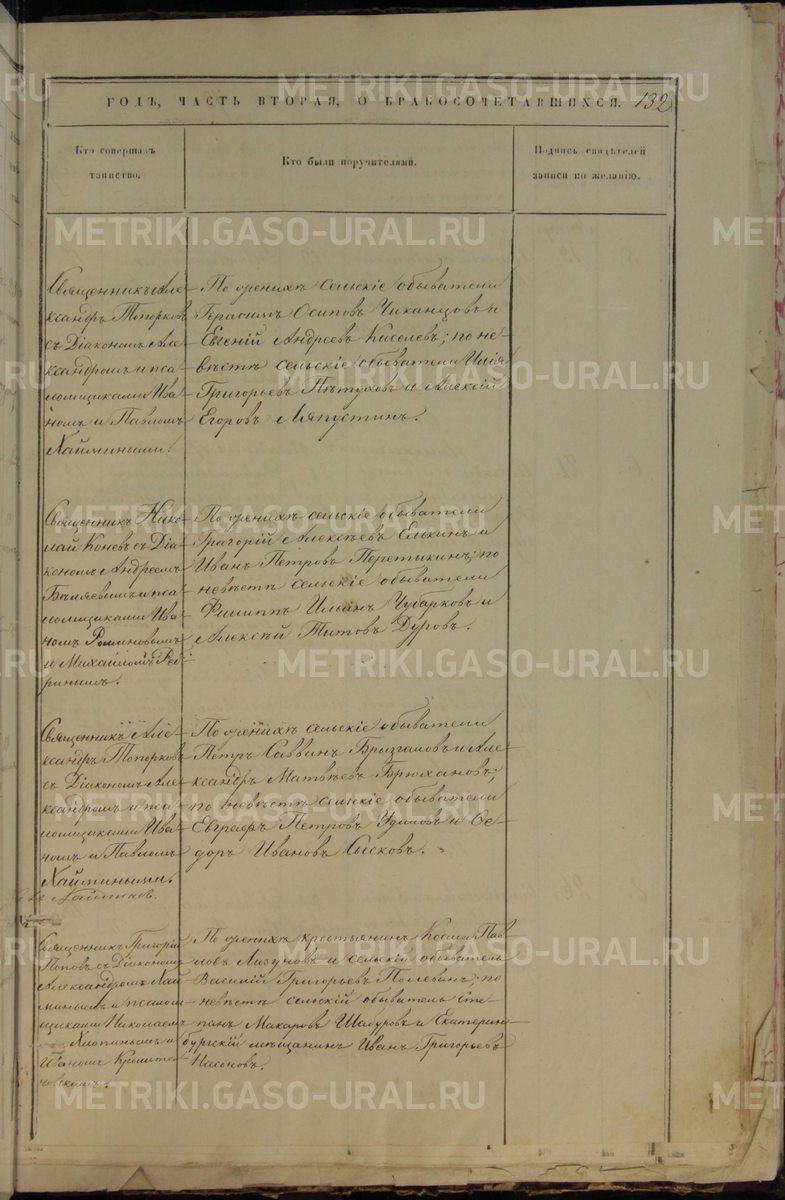 ГОДЪ, ЧАСТЬ ВТОРАЯ, О БРАКОСОЧЕТАВШИХСЯ. 132
Кто совершалъ
таинство.
Кто были поручителями.
Подпись свидѣтелей
записи по желанію.
Священникъ Але
ксандръ Топорковъ
съ Діакономъ Але
ксандромъ и пса
ломщиками Ива
номъ и Павломъ
Хаймиными.
По женихѣ сельскіе обыватели
Герасимъ Осиповъ Чиканцовъ и
Евгеній Андреевъ Киселевъ; по не-
вѣстѣ сельскіе обыватели Илія
Григорьевъ Пѣтуховъ и Алексій
Егоровъ Ляпустинъ.
Священникъ Нико
лай Коневъ съ Діа
кономъ Андреемъ
Бѣляевымъ и пса
ломщиками Ива
номъ Романовымъ
и Михаиломъ
По женихѣ сельскіе обыватели
Григорій Алексѣевъ Елькинъ и
Иванъ Петровъ Перетыкинъ; по
невѣстѣ сельскіе обыватели
Филиппъ Ильинъ Чубарковъ и
Алексѣй Титовъ Дуровъ.
Священникъ Але
ксандръ Топорковъ
съ Діакономъ Але
ксандромъ и пса
ломщиками Ива
номъ и Павломъ
Хаймиными.
По женихѣ сельскіе обыватели
Петръ Саввинъ Брызгаловъ и Але-
ксандръ Матвѣевъ Брюхановъ;
по невѣстѣ сельскіе обыватели
Евграфъ Петровъ Удиловъ и Ѳе-
доръ Ивановъ Сысковъ.
Священникъ Григорій
Поповъ съ Діакономъ
Александромъ Хай
минымъ и псалом
щиками Николаемъ
и
Иваномъ
По женихѣ крестьянинъ Косма Пав
ловъ Лизуновъ и сельскій обыватель
Василій Григорьевъ Полевинъ; по
невѣстѣ сельскій обыватель Сте
панъ Макаровъ Шабуровъ и Екатерин-
бургскій мѣщанинъ Иванъ Григорьевъ
METRIKI.GASO-URAL.RU